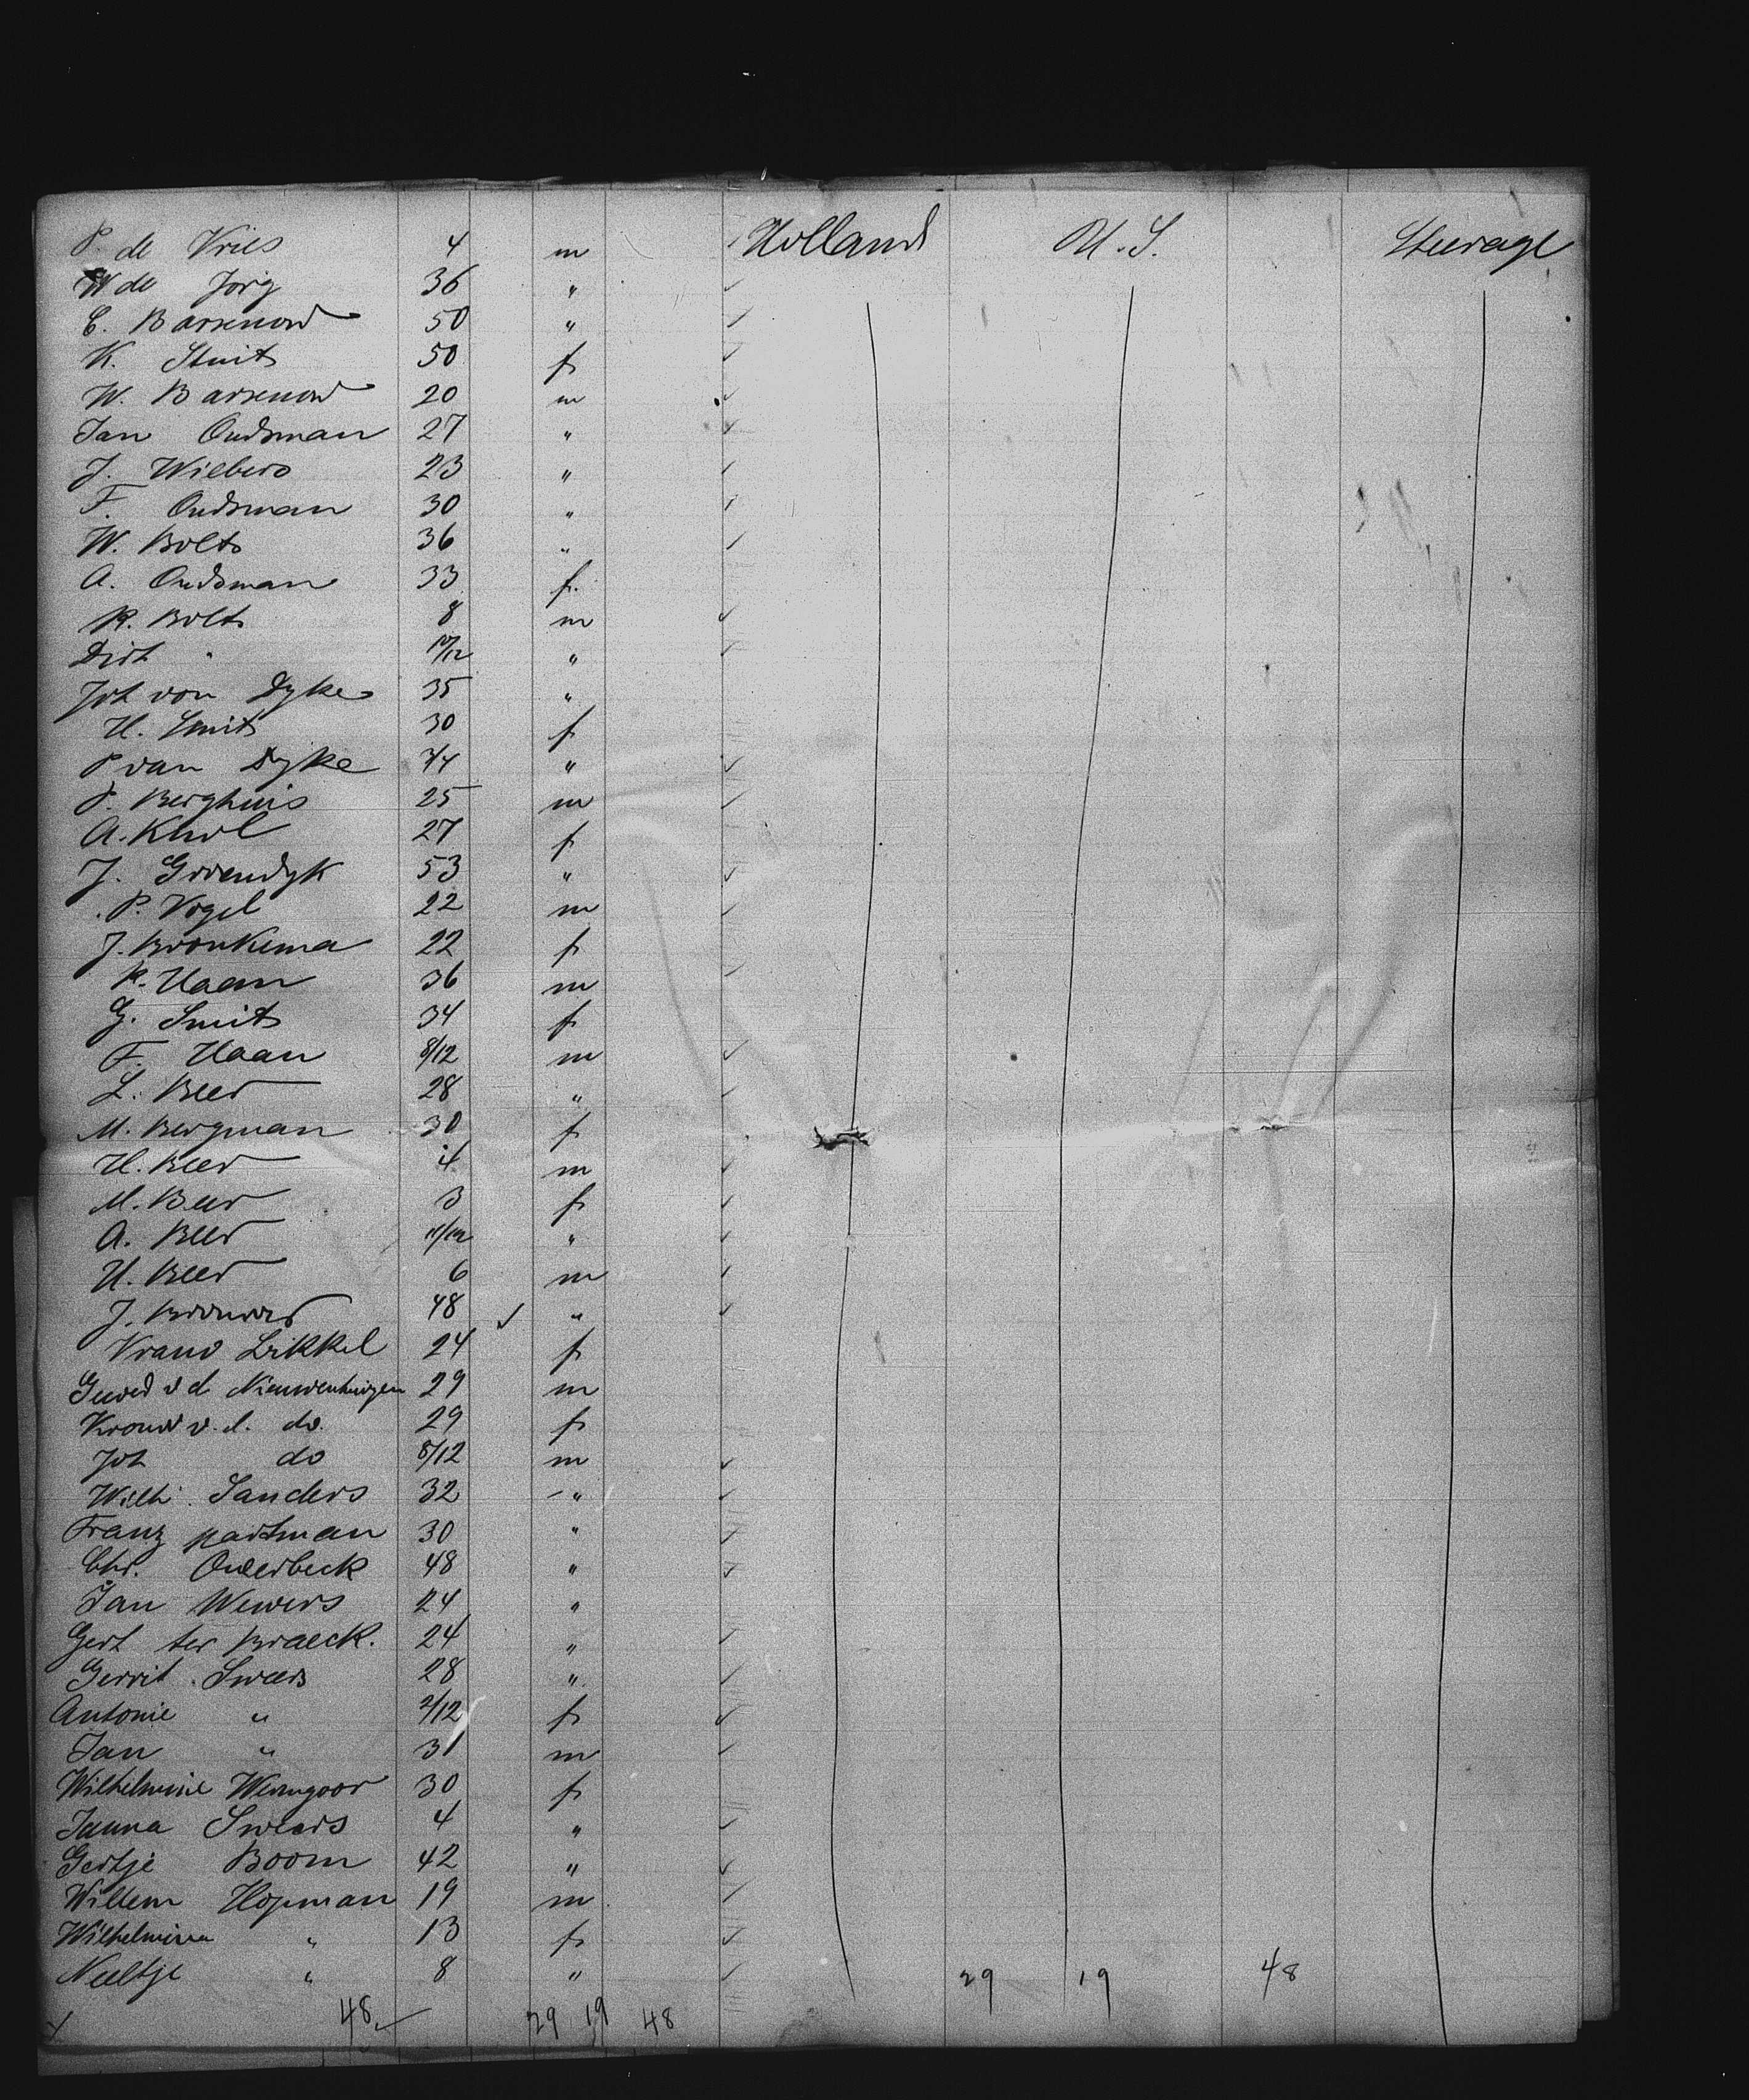 P. de Vries 4 m Holland U.S. Steerage
W de Jorg 36 "
C. Barsenow 50 "
K. Stuit 50 f
W. Barsenow 20 m
Jan Oudsman 27 "
J. Wilbers 23 "
F. Oudsman 30 "
W. Bolts 36 "
A. Oudsman 33 f.
R. Bolts 8 m
Dirk " 10/12 "
Joh von Dyke 35 "
H. Smits 30 f
P van Dyke 3/4 "
P. Berghuis 25 m
A. Knol 27 f
J. Groendyk 53 "
P. Vogel 22 m
J. Bronkema 22 f
R. Haan 36 m
G. Smits 34 f
F. Haan 8/12 m
L. Beer 28 "
M. Bergman 30 f
H. Beer 4 m
M. Beer 3 f
A. Beer 11/12 "
H. Beer 6 m
J. Brouwer 48 "
Vrauw Likkel 24 f
Geered v d Nieuwenhuizen 29 m
v. d. do. 29 f
Joh do 8/12 m
Wilh. Sanders 32 "
Franz partman 30 "
Chr. Overbeck 48 "
Jan Wewers 24 "
Gert ter Braeck. 24 "
Gerrit Sweers 28 "
Antonie " 2/12 f
Jan " 31 m
Wilhelmine 30 f
Janna Sweers 4 "
Gertje Boom 42 "
Willem Hopman 19 m
Wilhelmina " 13 f
Neeltje " 8 " 29 19 48
48 29 19 48